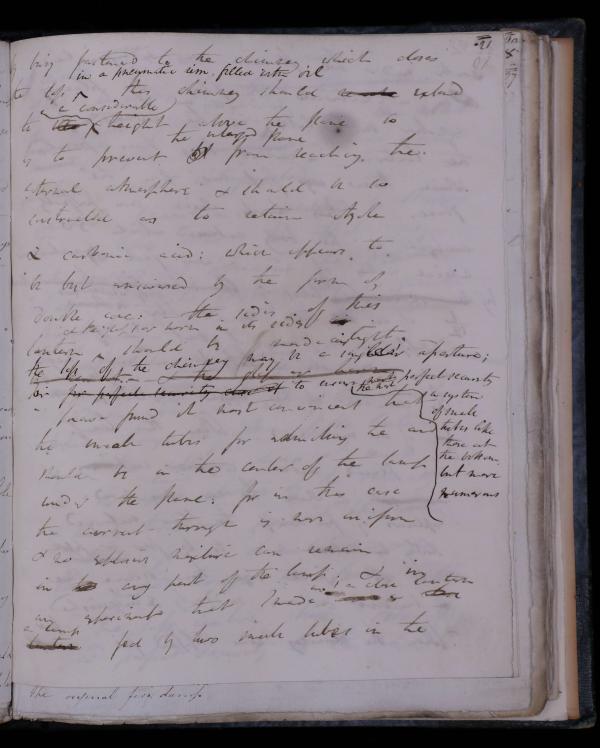 21
by being fastened to the chimney which closes
in a pneumatic rim filled with oil
the top this chimney should extend
a considerable
to height above the flame so
the inlaged flame
as to prevent from reaching the
external atmosphere & should be so
constructed as to retain Azote
& carbonic acid: which appears to
be best answered by the form of
double cone: the sides of this
in its sides
lantern should be made airtight
the top of the chimney may be a single aperture;
to ensure perfect security
I have found it most convenient that
a system
of small
tubes like
those at
the bottom
but more
numerous
the small tubes for admitting the air
should be in the center of the lamp
under the flame: for in this case
the current through is more uniform
& no explosive mixture can remain
in any part of the lamp; & in
an experiment that I made in a close lantern
a lamp
fed by two small tubes in the
The original fire lamp